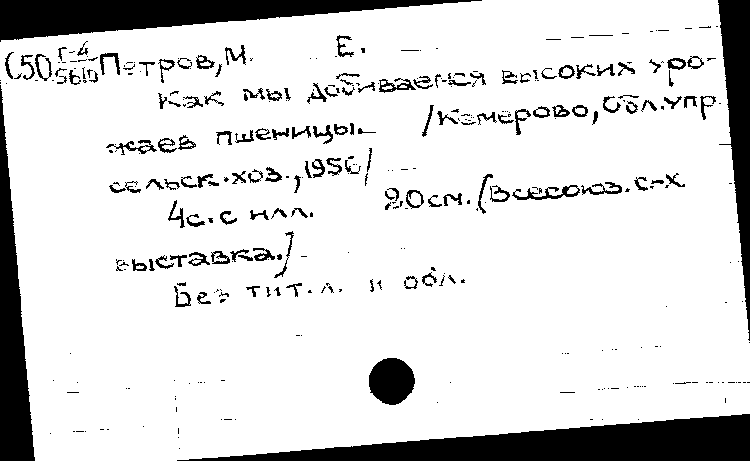 С50 Г-4/5610 Петров, М. Е.
Как мы добиваемся высоких уро-
жаев пшеницы. /Кемерово, Обл.упр.
сельск.хоз., 1956/
4с. с илл. 20см. /Всесоюз. с-х
выставка./
Без тит.л. и обл.